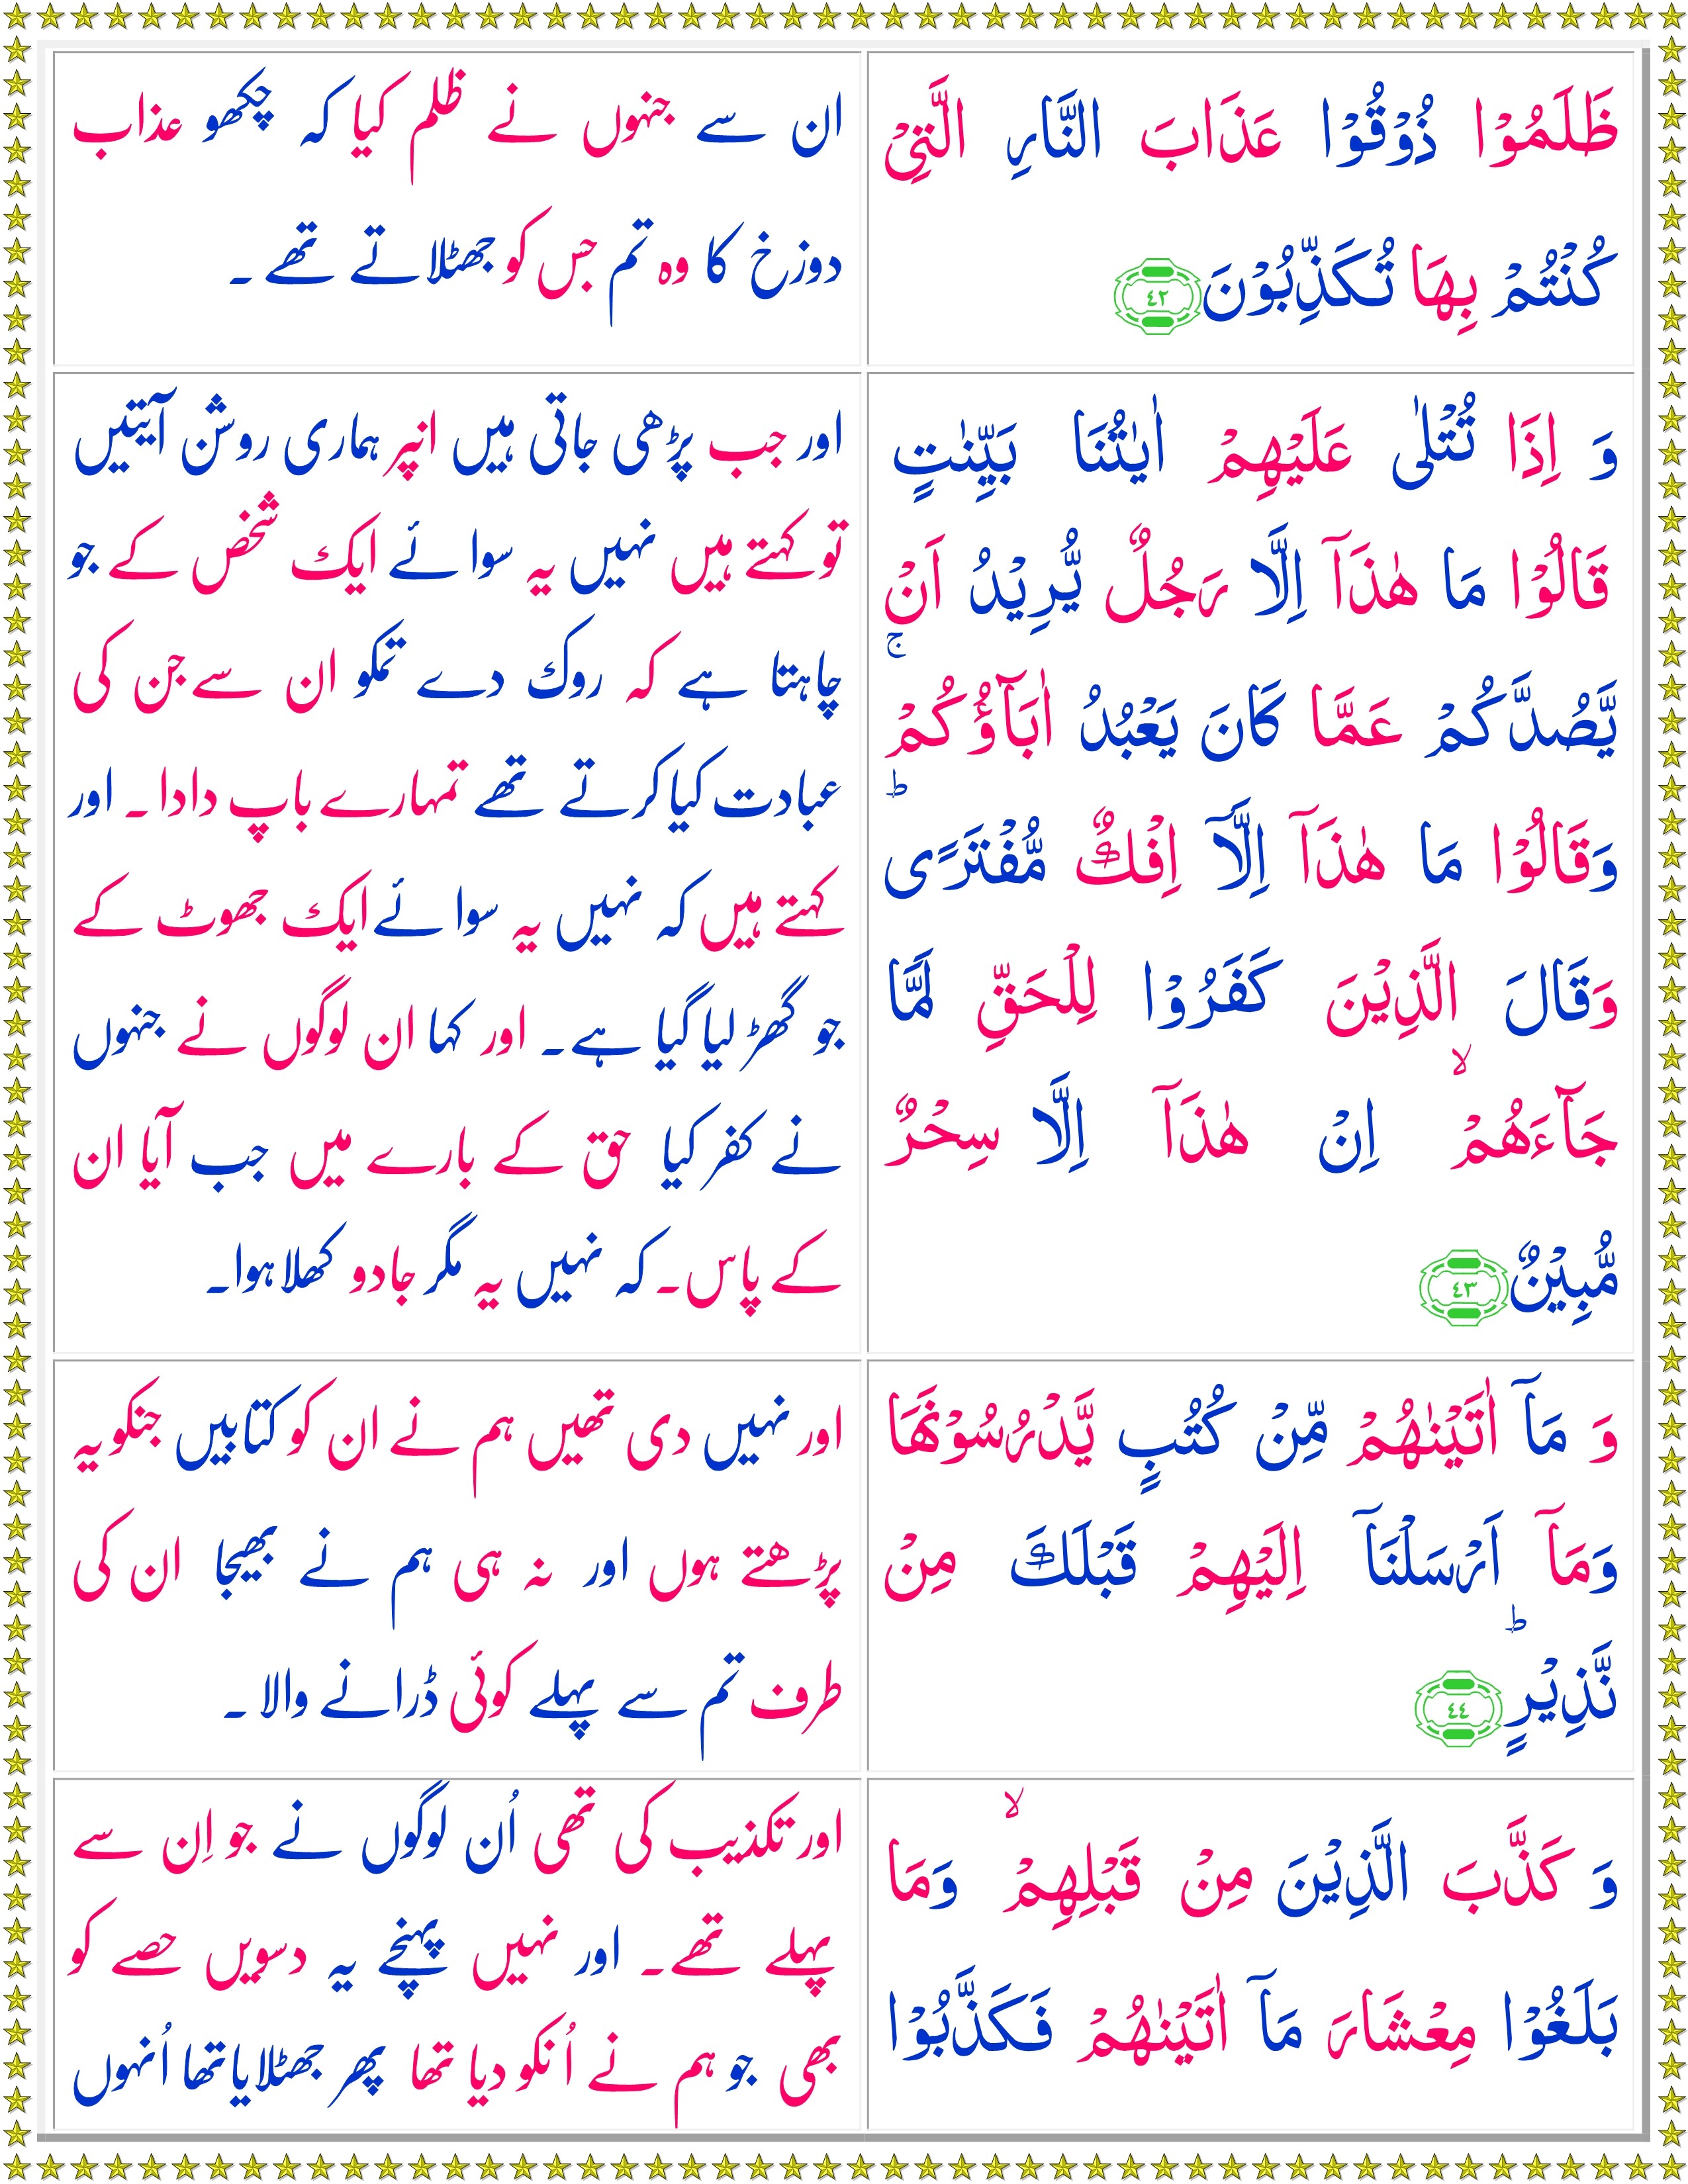 ظَلَمُوْا ذُوْقُوْا عَذَابَ النَّارِ الَّتِىْ
كُنْتُمْ بِهَا تُكَذِّبُوْنَ ٤٢
ان سے جنہوں نے ظلم کیا کہ چکھو عذاب
دوزخ کا وہ تم جس کو جھٹلاتے تھے ۔
وَ اِذَا تُتْلٰى عَلَيْهِمْ اٰيٰتُنَا بَيِّنٰتٍ
قَالُوْا مَا هٰذَاۤ اِلَّا رَجُلٌ يُّرِيْدُ اَنْ
يَّصُدَّكُمْ عَمَّا كَانَ يَعْبُدُ اٰبَآؤُكُمْ ۚ
وَقَالُوْا مَا هٰذَاۤ اِلَّاۤ اِفْكٌ مُّفْتَرًى ؕ
وَقَالَ الَّذِيْنَ كَفَرُوْا لِلْحَقِّ لَمَّا
جَآءَهُمْ ۙ اِنْ هٰذَاۤ اِلَّا سِحْرٌ
مُّبِيْنٌ ٤٣
اور جب پڑھی جاتی ہیں انپر ہماری روشن آیتیں
تو کہتے ہیں نہیں یہ سوائے ایک شخص کے جو
چاہتا ہے کہ روک دے تمکو ان سے جن کی
عبادت کیا کرتے تھے تمہارے باپ دادا ۔ اور
کہتے ہیں کہ نہیں یہ سوائے ایک جھوٹ کے
جو گھڑ لیا گیا ہے ۔ اور کہا ان لوگوں نے جنہوں
نے کفر کیا حق کے بارے میں جب آیا ان
کے پاس ۔ کہ نہیں یہ مگر جادو کھلا ہوا ۔
وَ مَاۤ اٰتَيْنٰهُمْ مِّنْ كُتُبٍ يَّدْرُسُوْنَهَا
وَمَاۤ اَرْسَلْنَاۤ اِلَيْهِمْ قَبْلَكَ مِنْ
نَّذِيْرٍ ؕ ٤٤
اور نہیں دی تھیں ہم نے ان کو کتابیں جنکو یہ
پڑھتے ہوں اور نہ ہی ہم نے بھیجا ان کی
طرف تم سے پہلے کوئی ڈرانے والا ۔
وَ كَذَّبَ الَّذِيْنَ مِنْ قَبْلِهِمْ ۙ وَمَا
بَلَغُوْا مِعْشَارَ مَاۤ اٰتَيْنٰهُمْ فَكَذَّبُوْا
اور تکذیب کی تھی اُن لوگوں نے جو اِن سے
پہلے تھے ۔ اور نہیں پہنچے یہ دسویں حصے کو
بھی جو ہم نے اُنکو دیا تھا پھر جھٹلایا تھا اُنہوں